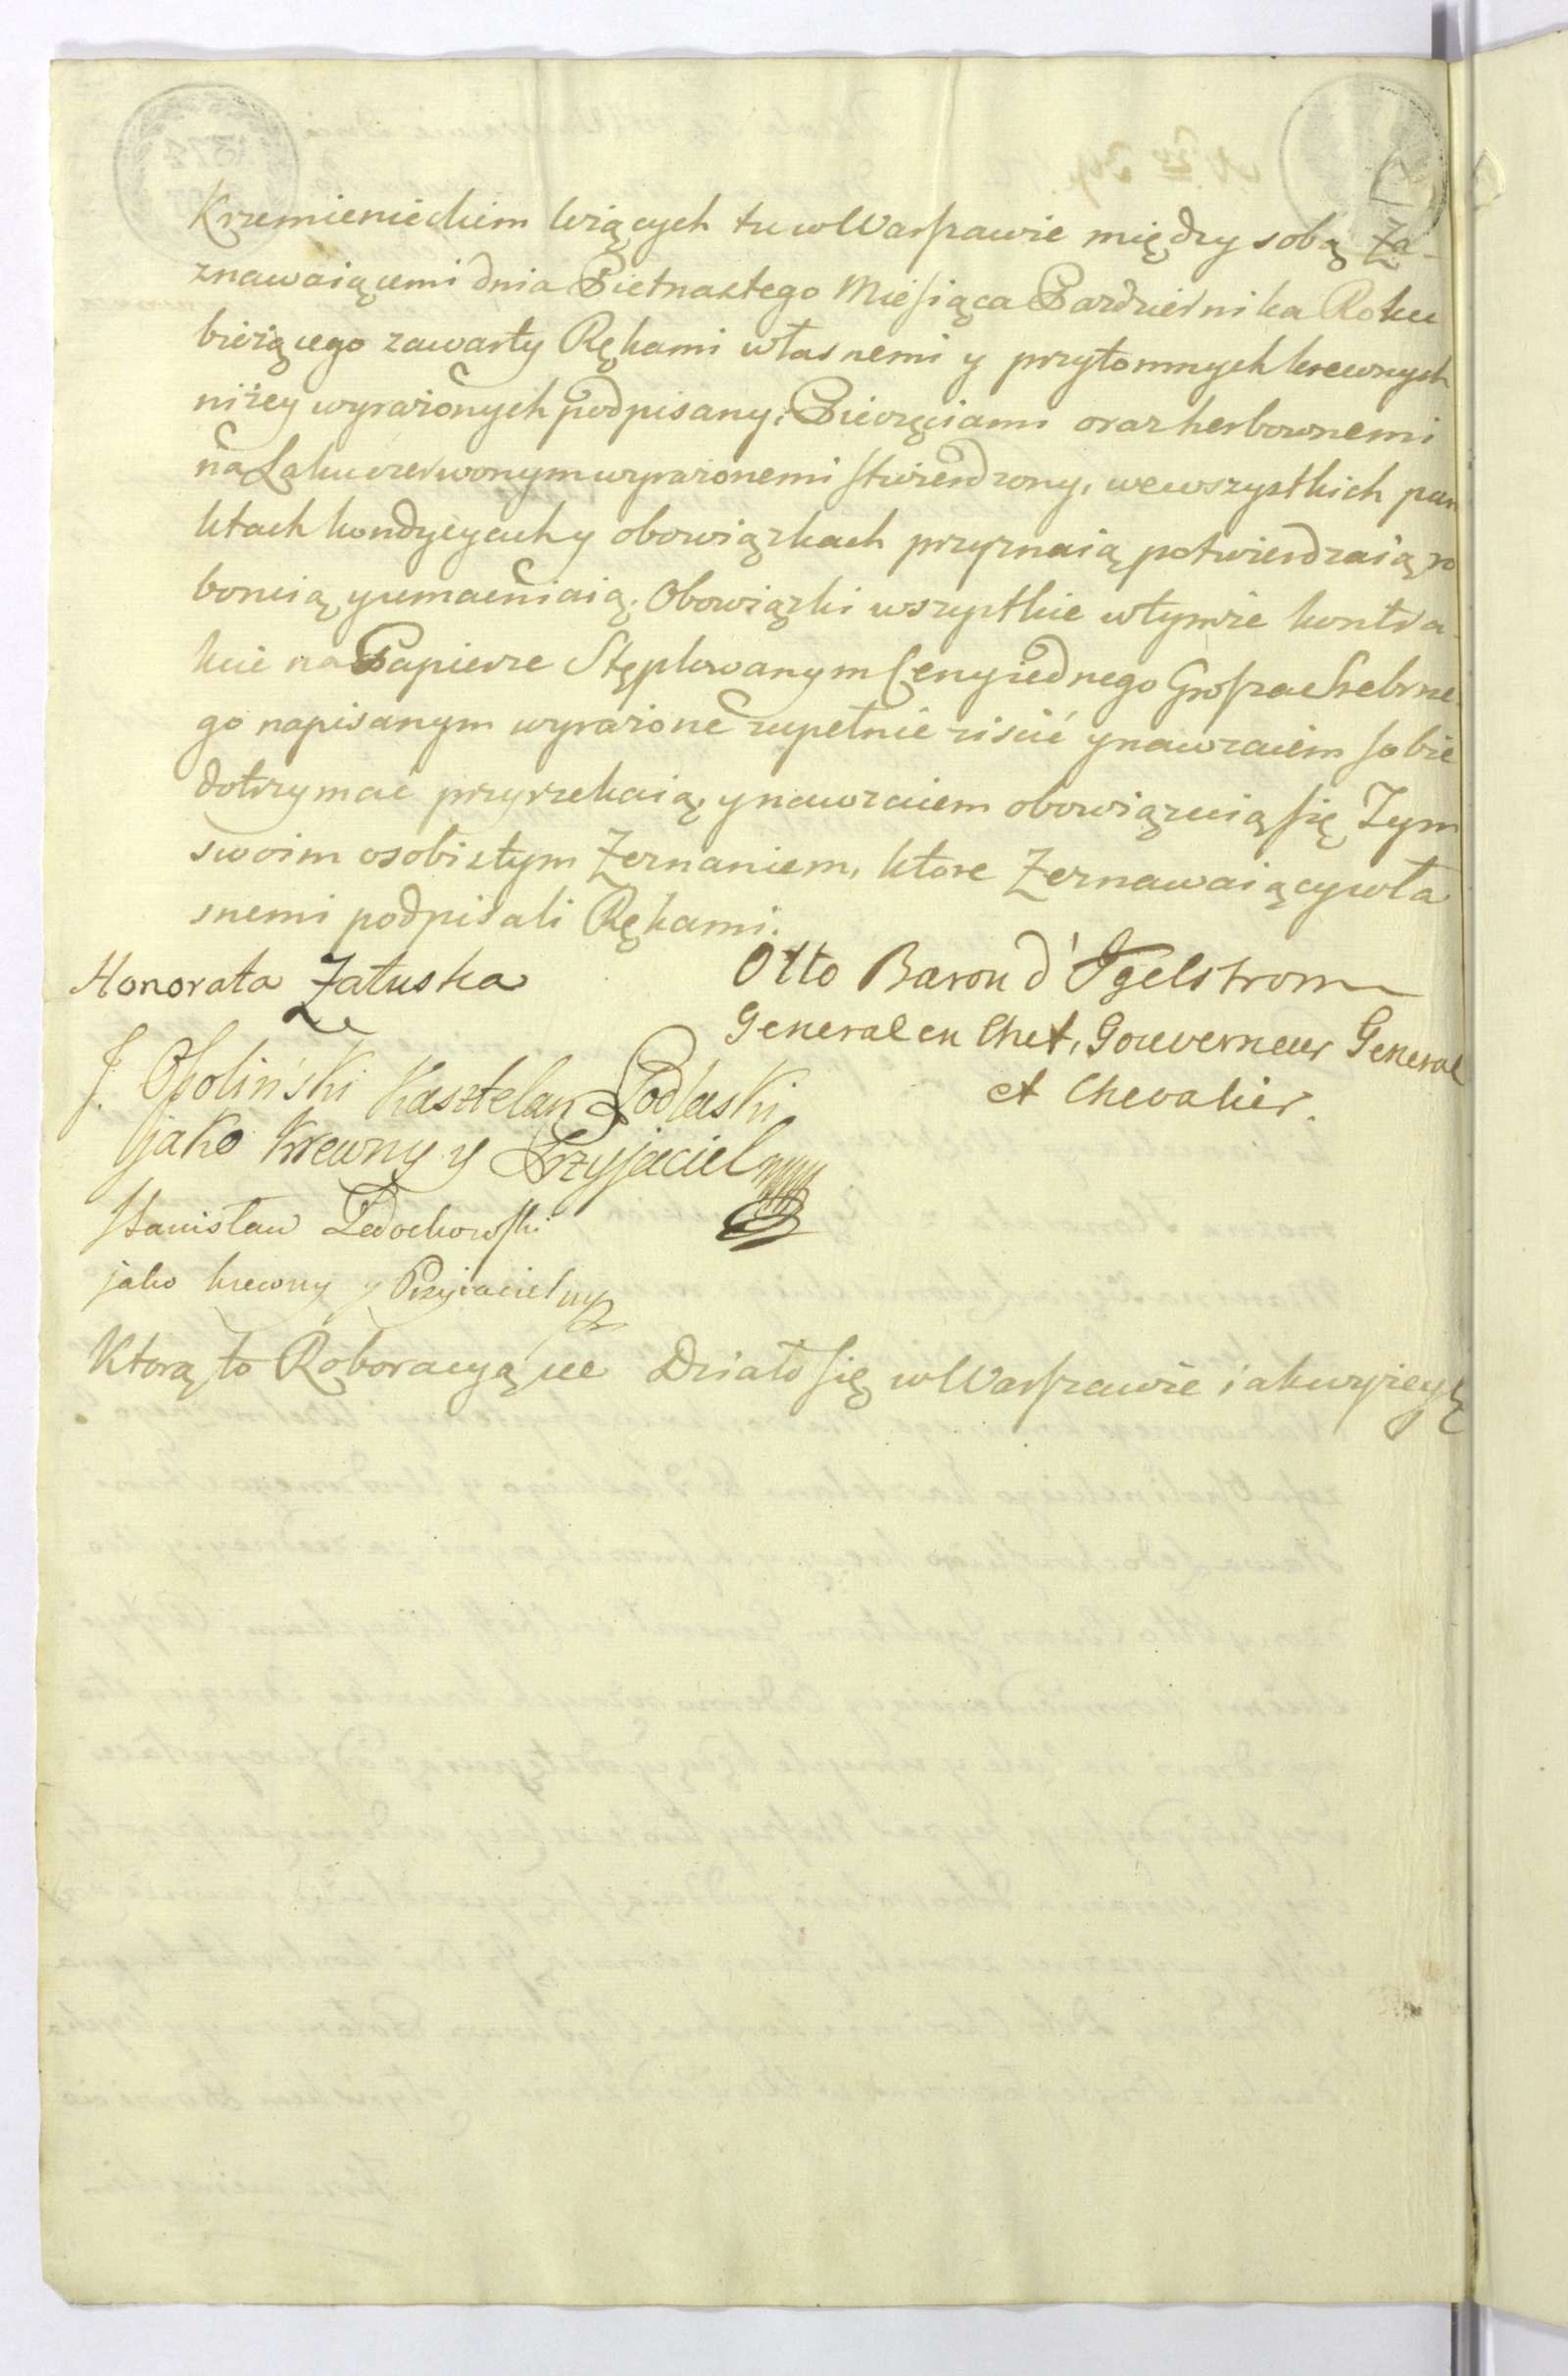 Krzemienieckim leżących tu w Warszawie między sobą Ze-
znawaiącemi dnia Pietnastego Miesiąca Pazdziernika Roku
bieżącego zawarty Rękami własnemi y przytomnych krewnych
niżey wyrażonych podpisany, Pieczęciami oraz herbownemi
na Laku czerwonym wyrażonemi stwierdzony, we wszystkich pun
ktach kondycyach y obowiązkach przyznaią, potwierdzaią, ro
boruią, y umacniaią. Obowiązki wszystkie w tymże kontra-
kcie na Papierze Stęplowanym Ceny iednego Grosza Srebrne-
go napisanym wyrażone zupełnie ziścić y nawzaiem sobie
dotrzymać przyrzekaią, y nawzaiem obowiązuią się, Tym
swoim osobistym Zeznaniem, ktore Zeznawaiący wła
snemi podpisali Rękami.
Honorata Załuska
Otto Baron d'Igelstrom
General en Chef, Gouverneur General
et Chevalier.
J. Opoliński Kasztelan Podlaski
jako Krewny y Przyjaciel mpp
Stanisław Ledochowski
jako krewny y Przyiaciel mp
Ktorą to Roboracyą ... Działo się w Warszawie iak wyżey